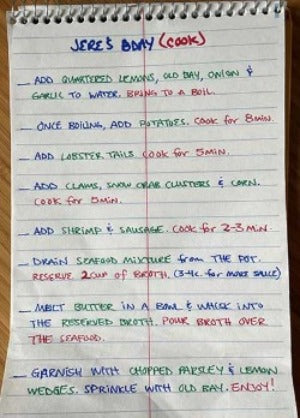 JERE'S BDAY (COOK)
— ADD QUARTERED LEMONS, OLD BAY, ONION &
GARLIC TO WATER. BRING TO A BOIL.
— ONCE BOILING, ADD POTATOES. COOK for 8 min.
— ADD LOBSTER TAILS. COOK for 5 min.
— ADD CLAMS, SNOW CRAB CLUSTERS & CORN.
COOK for 5 min.
— ADD SHRIMP & SAUSAGE. COOK for 2-3 MIN.
— DRAIN SEAFOOD MIXTURE from THE POT.
RESERVE 2 CUP of BROTH. (3-4c. for MORE SAUCE)
— MELT BUTTER IN A BOWL & WHISK INTO
THE RESERVED BROTH. POUR BROTH OVER
THE SEAFOOD.
— GARNISH WITH CHOPPED PARSLEY & LEMON
WEDGES. SPRINKLE WITH OLD BAY. ENJOY!